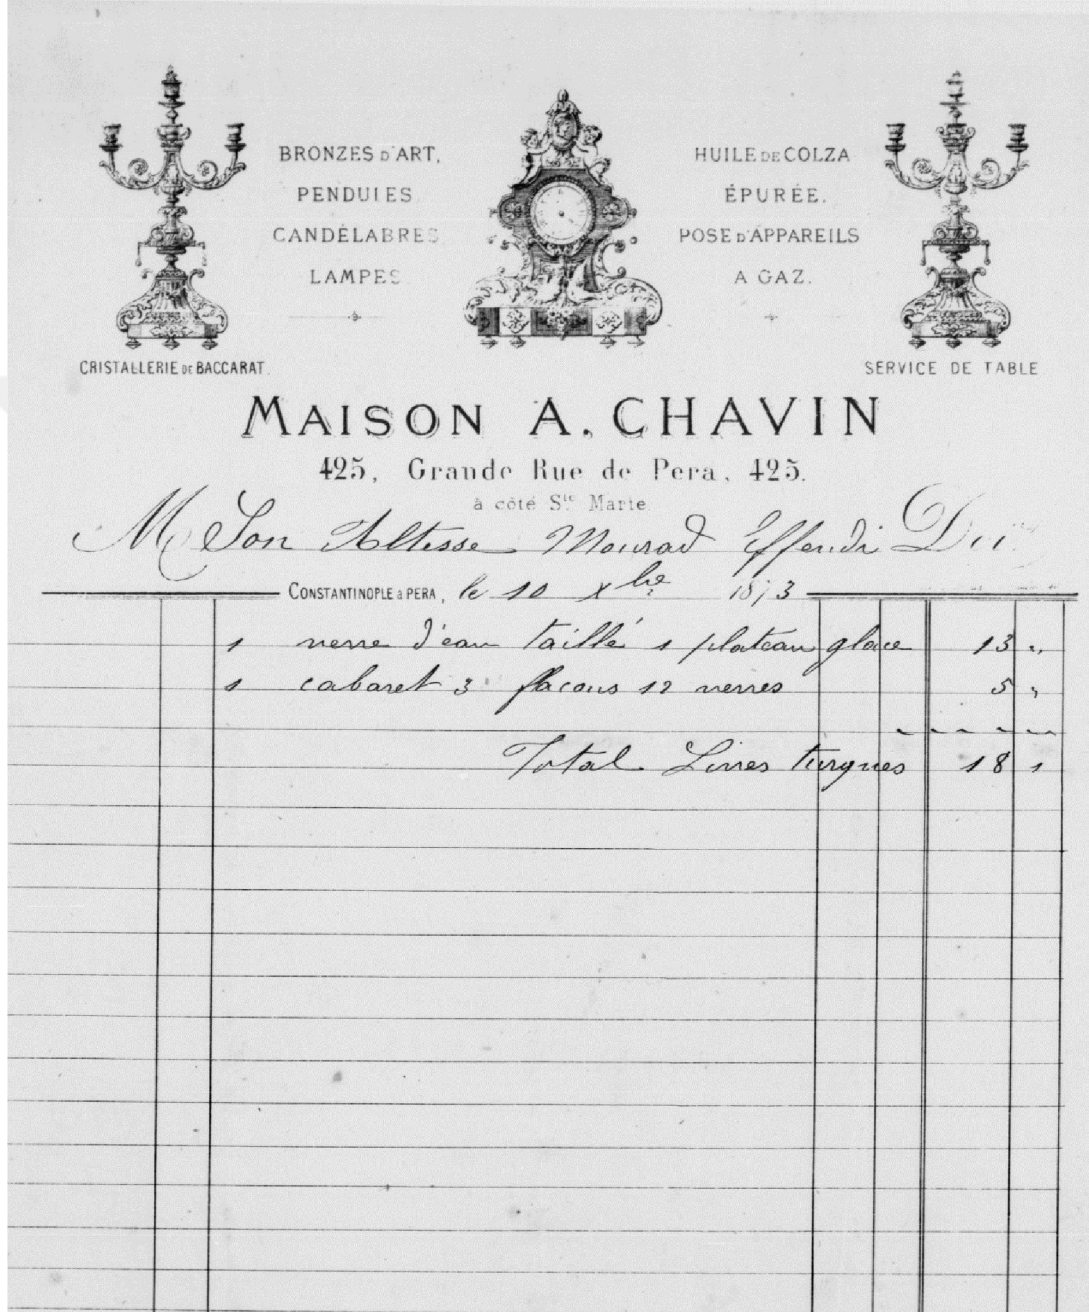 BRONZES D'ART,
PENDULES
CANDÉLABRES
LAMPES
HUILE DE COLZA
ÉPURÉE.
POSE D'APPAREILS
A GAZ.
CRISTALLERIE DE BACCARAT.
SERVICE DE TABLE
MAISON A. CHAVIN
425, Grande Rue de Pera, 425.
à côté Ste Marie
M Son Altesse Mourad Effendi Doit
CONSTANTINOPLE à PERA, le 10 Xbre 1873
1 verre d'eau taillé 1 plateau glace 13 "
1 cabaret 3 flacons 12 verres 5 "
Total Livres turques 18 "